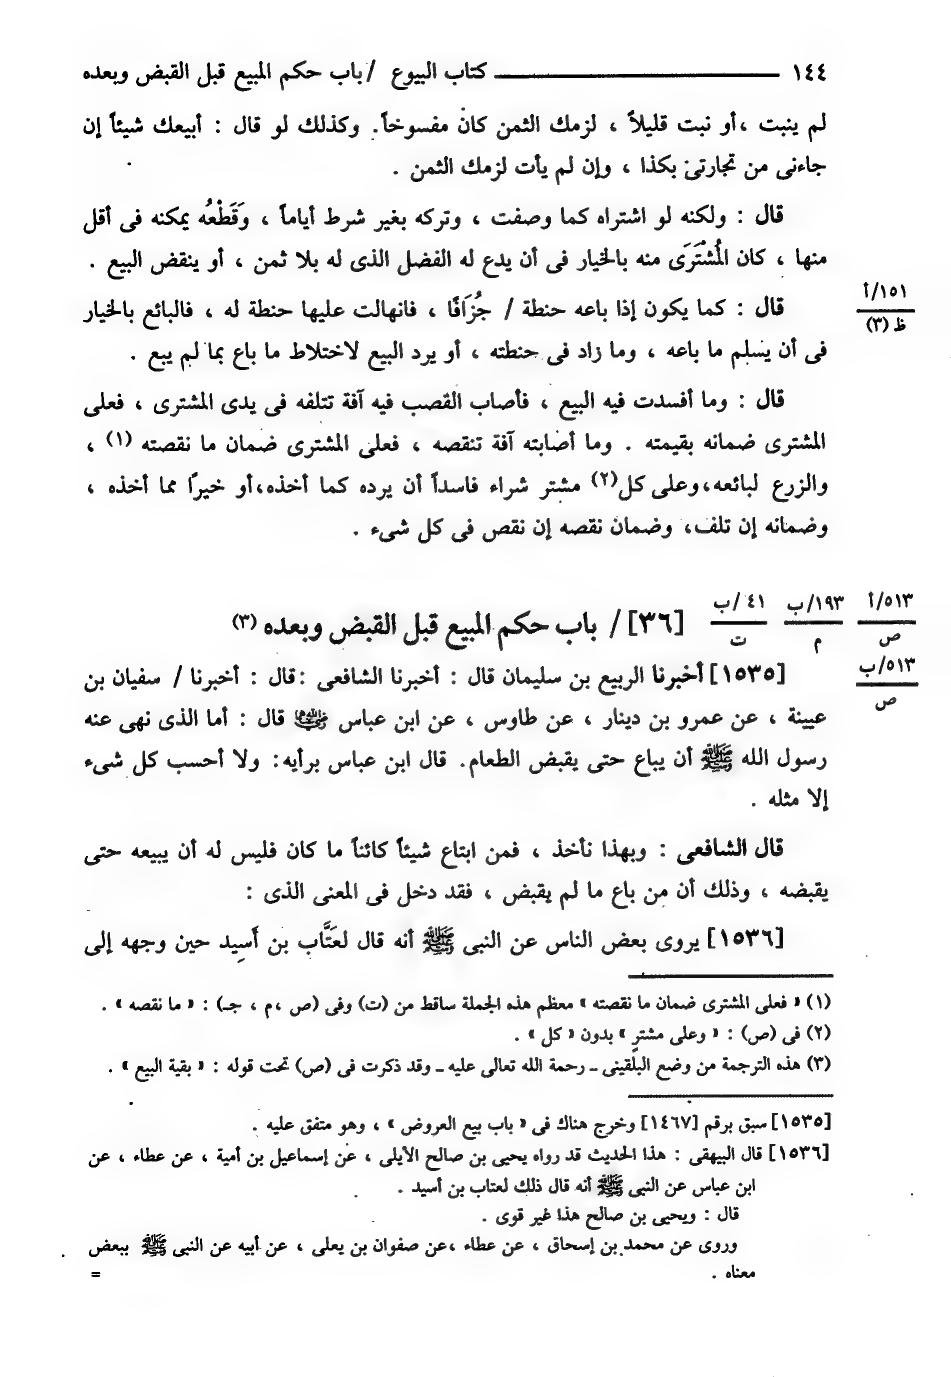 ١٤٤ ـــــــــــــــ كتاب البيوع / باب حكم المبيع قبل القبض وبعده
لم ينبت ،أو نبت قليلاً ، لزمك الثمن كان مفسوخاً. وكذلك لو قال : أبيعك شيئاً إن
جاءنى من تجارتى بكذا ، وإن لم يأت لزمك الثمن .
قال : ولكنه لو اشتراه كما وصفت ، وتركه بغير شرط أياماً ، وَقَطْعُه يمكنه فى أقل
منها ، كان المُشْتَرَى منه بالخيار فى أن يدع له الفضل الذى له بلا ثمن ، أو ينقض البيع .
قال : كما يكون إذا باعه حنطة / جُزَافًا ، فانهالت عليها حنطة له ، فالبائع بالخيار
١٥١/أ
ظ (٣)
فى أن يسلم ما باعه ، وما زاد فى حنطته ، أو يرد البيع لاختلاط ما باع بما لم يبع .
قال : وما أفسدت فيه البيع ، فأصاب القصب فيه آفة تتلفه فى يدى المشترى ، فعلى
المشترى ضمانه بقيمته . وما أصابته آفة تنقصه ، فعلى المشترى ضمان ما نقصته (١) ،
والزرع لبائعه،وعلى كل(٢) مشتر شراء فاسداً أن يرده كما أخذه،أو خيرًا مما أخذه ،
وضمانه إن تلف، وضمان نقصه إن نقص فى كل شىء .
٥١٣/أ
ص
١٩٣/ب
م
٤١/ب
ت
[٣٦] / باب حكم المبيع قبل القبض وبعده (٣)
٥١٣/ب
ص
[١٥٣٥] أخبرنا الربيع بن سليمان قال : أخبرنا الشافعى :قال : أخبرنا / سفيان بن
عيينة ، عن عمرو بن دينار ، عن طاوس ، عن ابن عباس رضي الله عنهما قال : أما الذى نهى عنه
رسول الله ﷺ أن يباع حتى يقبض الطعام. قال ابن عباس برأيه: ولا أحسب كل شىء
إلا مثله .
قال الشافعى : وبهذا نأخذ ، فمن ابتاع شيئاً كائناً ما كان فليس له أن يبيعه حتى
يقبضه ، وذلك أن من باع ما لم يقبض ، فقد دخل فى المعنى الذى :
[١٥٣٦] يروى بعض الناس عن النبى ﷺ أنه قال لعَتَّاب بن أَسِيد حين وجهه إلى
(١) « فعلى المشترى ضمان ما نقصته » معظم هذه الجملة ساقط من (ت) وفى (ص ،م ، جـ) : « ما نقصه » .
(٢) فى (ص) : « وعلى مشترٍ » بدون « كل » .
(٣) هذه الترجمة من وضع البلقينى ـ رحمة الله تعالى عليه ـ وقد ذكرت فى (ص) تحت قوله : « بقية البيع » .
[١٥٣٥] سبق برقم [١٤٦٧] وخرج هناك فى « باب بيع العروض » ، وهو متفق عليه .
[١٥٣٦] قال البيهقى : هذا الحديث قد رواه يحيى بن صالح الأيلى ، عن إسماعيل بن أمية ، عن عطاء ، عن
ابن عباس عن النبى ﷺ أنه قال ذلك لعتاب بن أسيد .
قال : ويحيى بن صالح هذا غير قوى .
وروى عن محمد بن إسحاق ، عن عطاء ،عن صفوان بن يعلى ، عن أبيه عن النبى ﷺ ببعض
معناه . =